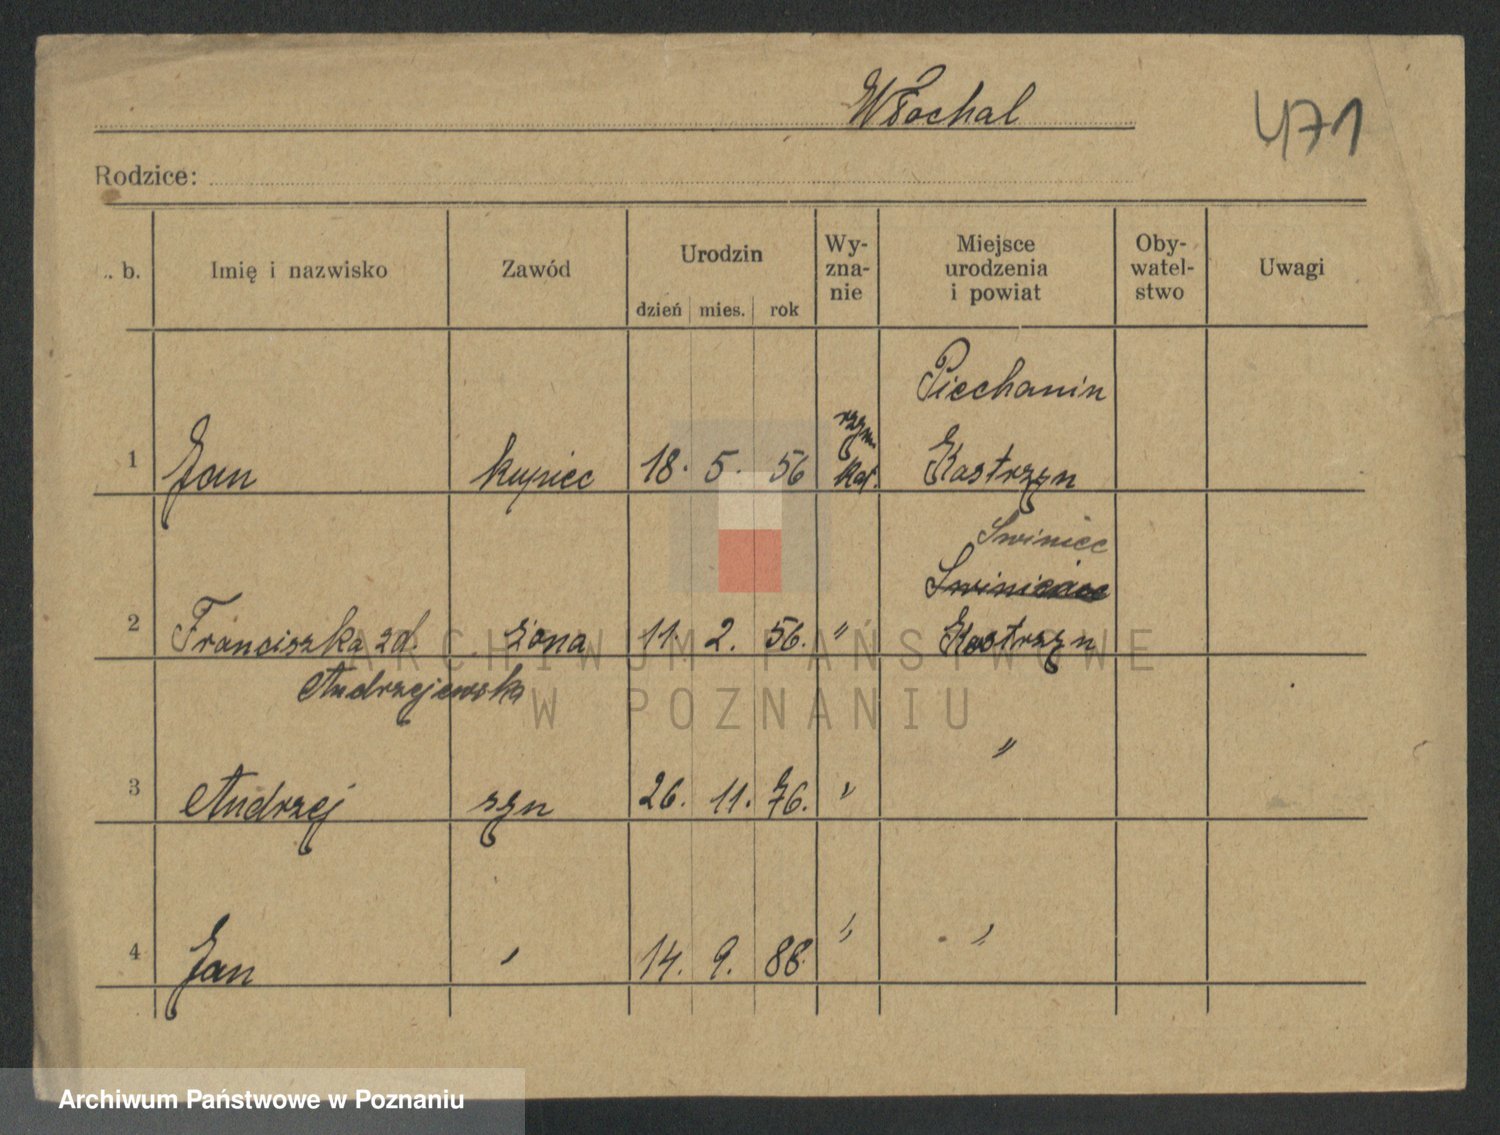 Włochal
471
Rodzice:
L. b. Imię i nazwisko Zawód Urodzin dzień mies. rok Wy-zna-nie Miejsce urodzenia i powiat Oby-watel-stwo Uwagi
Piechanin
1 Jan kupiec 18. 5. 56 rzym. kat. Kostrzyn
Swiniec
2 Franciszka zd. żona 11. 2. 56. " Kostrzyn
Andrzejewska
3 Andrzej syn 26. 11. 76. " "
4 Jan " 14. 9. 88. " "
ARCHIWUM PAŃSTWOWE
W POZNANIU
Archiwum Państwowe w Poznaniu